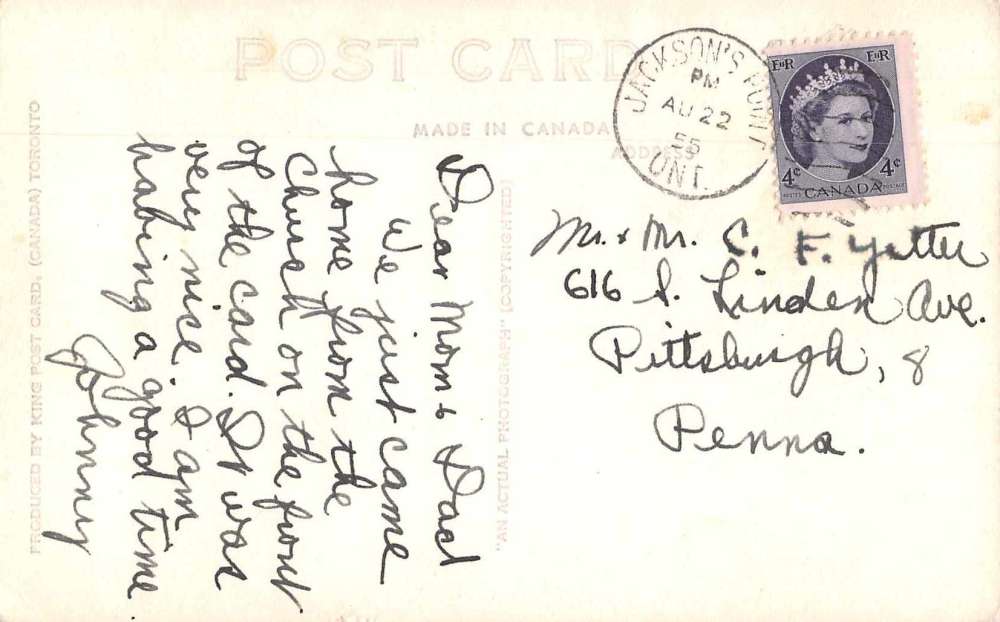 POST CARD
MADE IN CANADA
ADDRESS
JACKSON'S POINT
PM
AU 22
55
ONT.
EIIR EIIR
4¢ 4¢
POSTES CANADA POSTAGE
Mr. + Mr. C. F. Yutter
616 S. Linden Ave.
Pittsburgh, 8
Penna.
Dear Mom & Dad
We just came
home from the
Church on the front
of the card. It was
very nice. I am
habing a good time.
Johnny
"AN ACTUAL PHOTOGRAPH" (COPYRIGHTED)
PRODUCED BY KING POST CARD, (CANADA) TORONTO